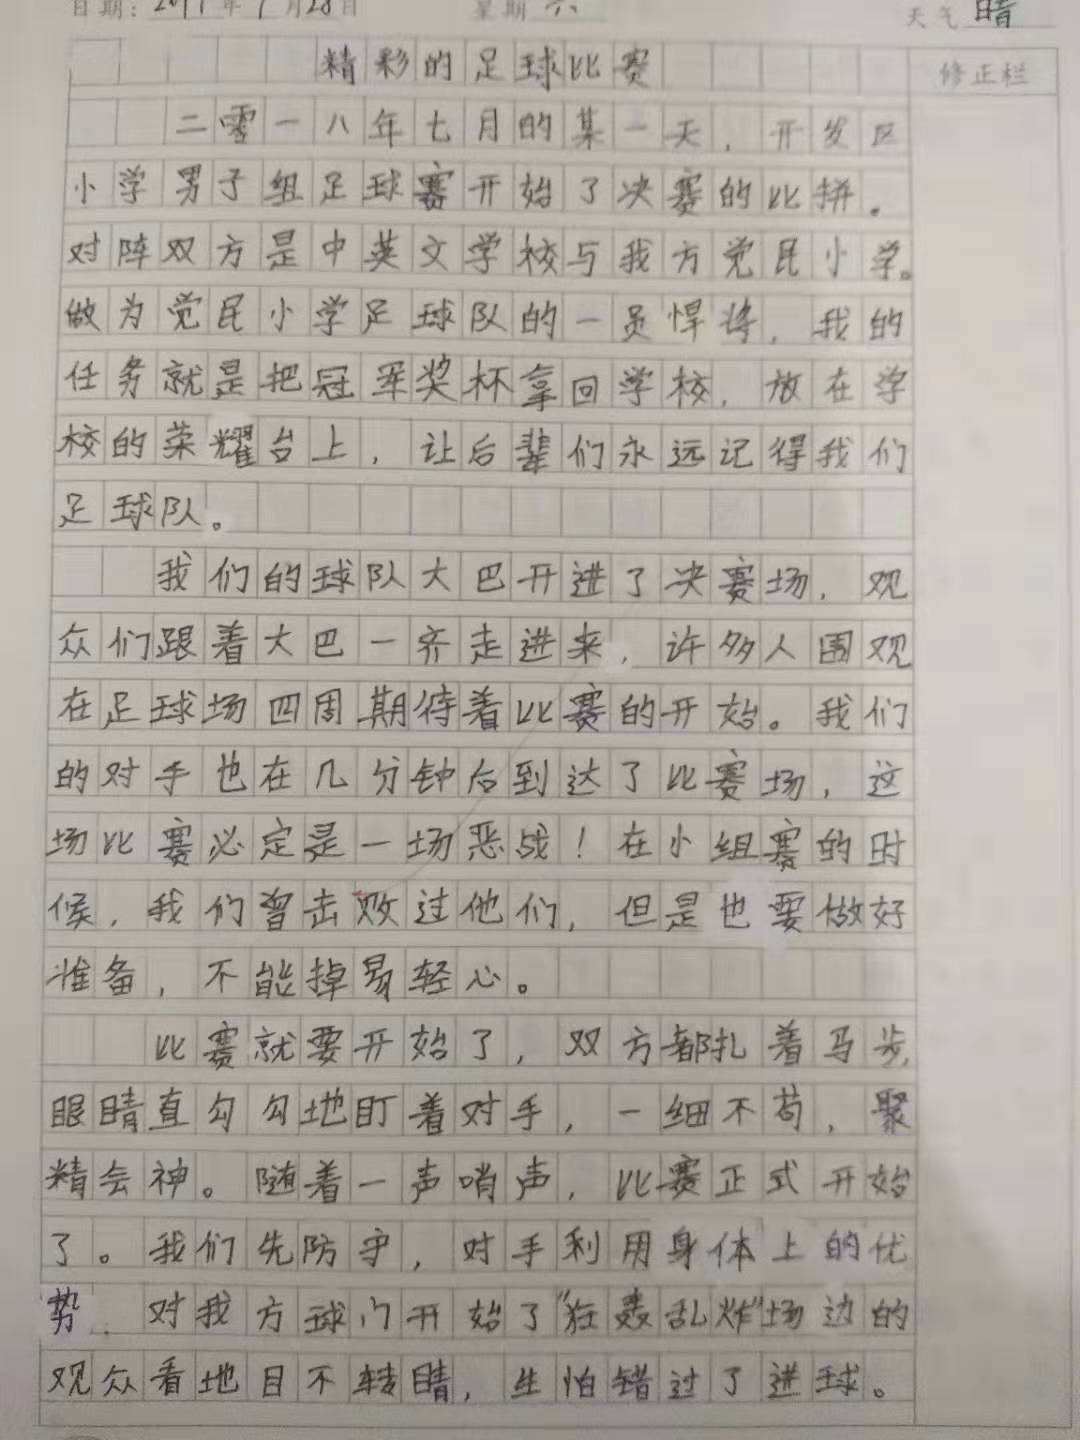 日期: 年 月28日 星期 六 天气 晴
精彩的足球比赛 修正栏
二零一八年七月的某一天，开发区
小学男子组足球赛开始了决赛的比拼。
对阵双方是中英文学校与我方党民小学。
做为党民小学足球队的一员悍将，我的
任务就是把冠军奖杯拿回学校，放在学
校的荣耀台上，让后辈们永远记得我们
足球队。
我们的球队大巴开进了决赛场，观
众们跟着大巴一齐走进来，许多人围观
在足球场四周期待着比赛的开始。我们
的对手也在几分钟后到达了比赛场，这
场比赛必定是一场恶战！在小组赛的时
候，我们曾击败过他们，但是也要做好
准备，不能掉易轻心。
比赛就要开始了，双方都扎着马步，
眼睛直勾勾地盯着对手，一细不苟，聚
精会神。随着一声哨声，比赛正式开始
了。我们先防守，对手利用身体上的优
势，对我方球门开始了“狂轰乱炸”场边的
观众看地目不转睛，生怕错过了进球。